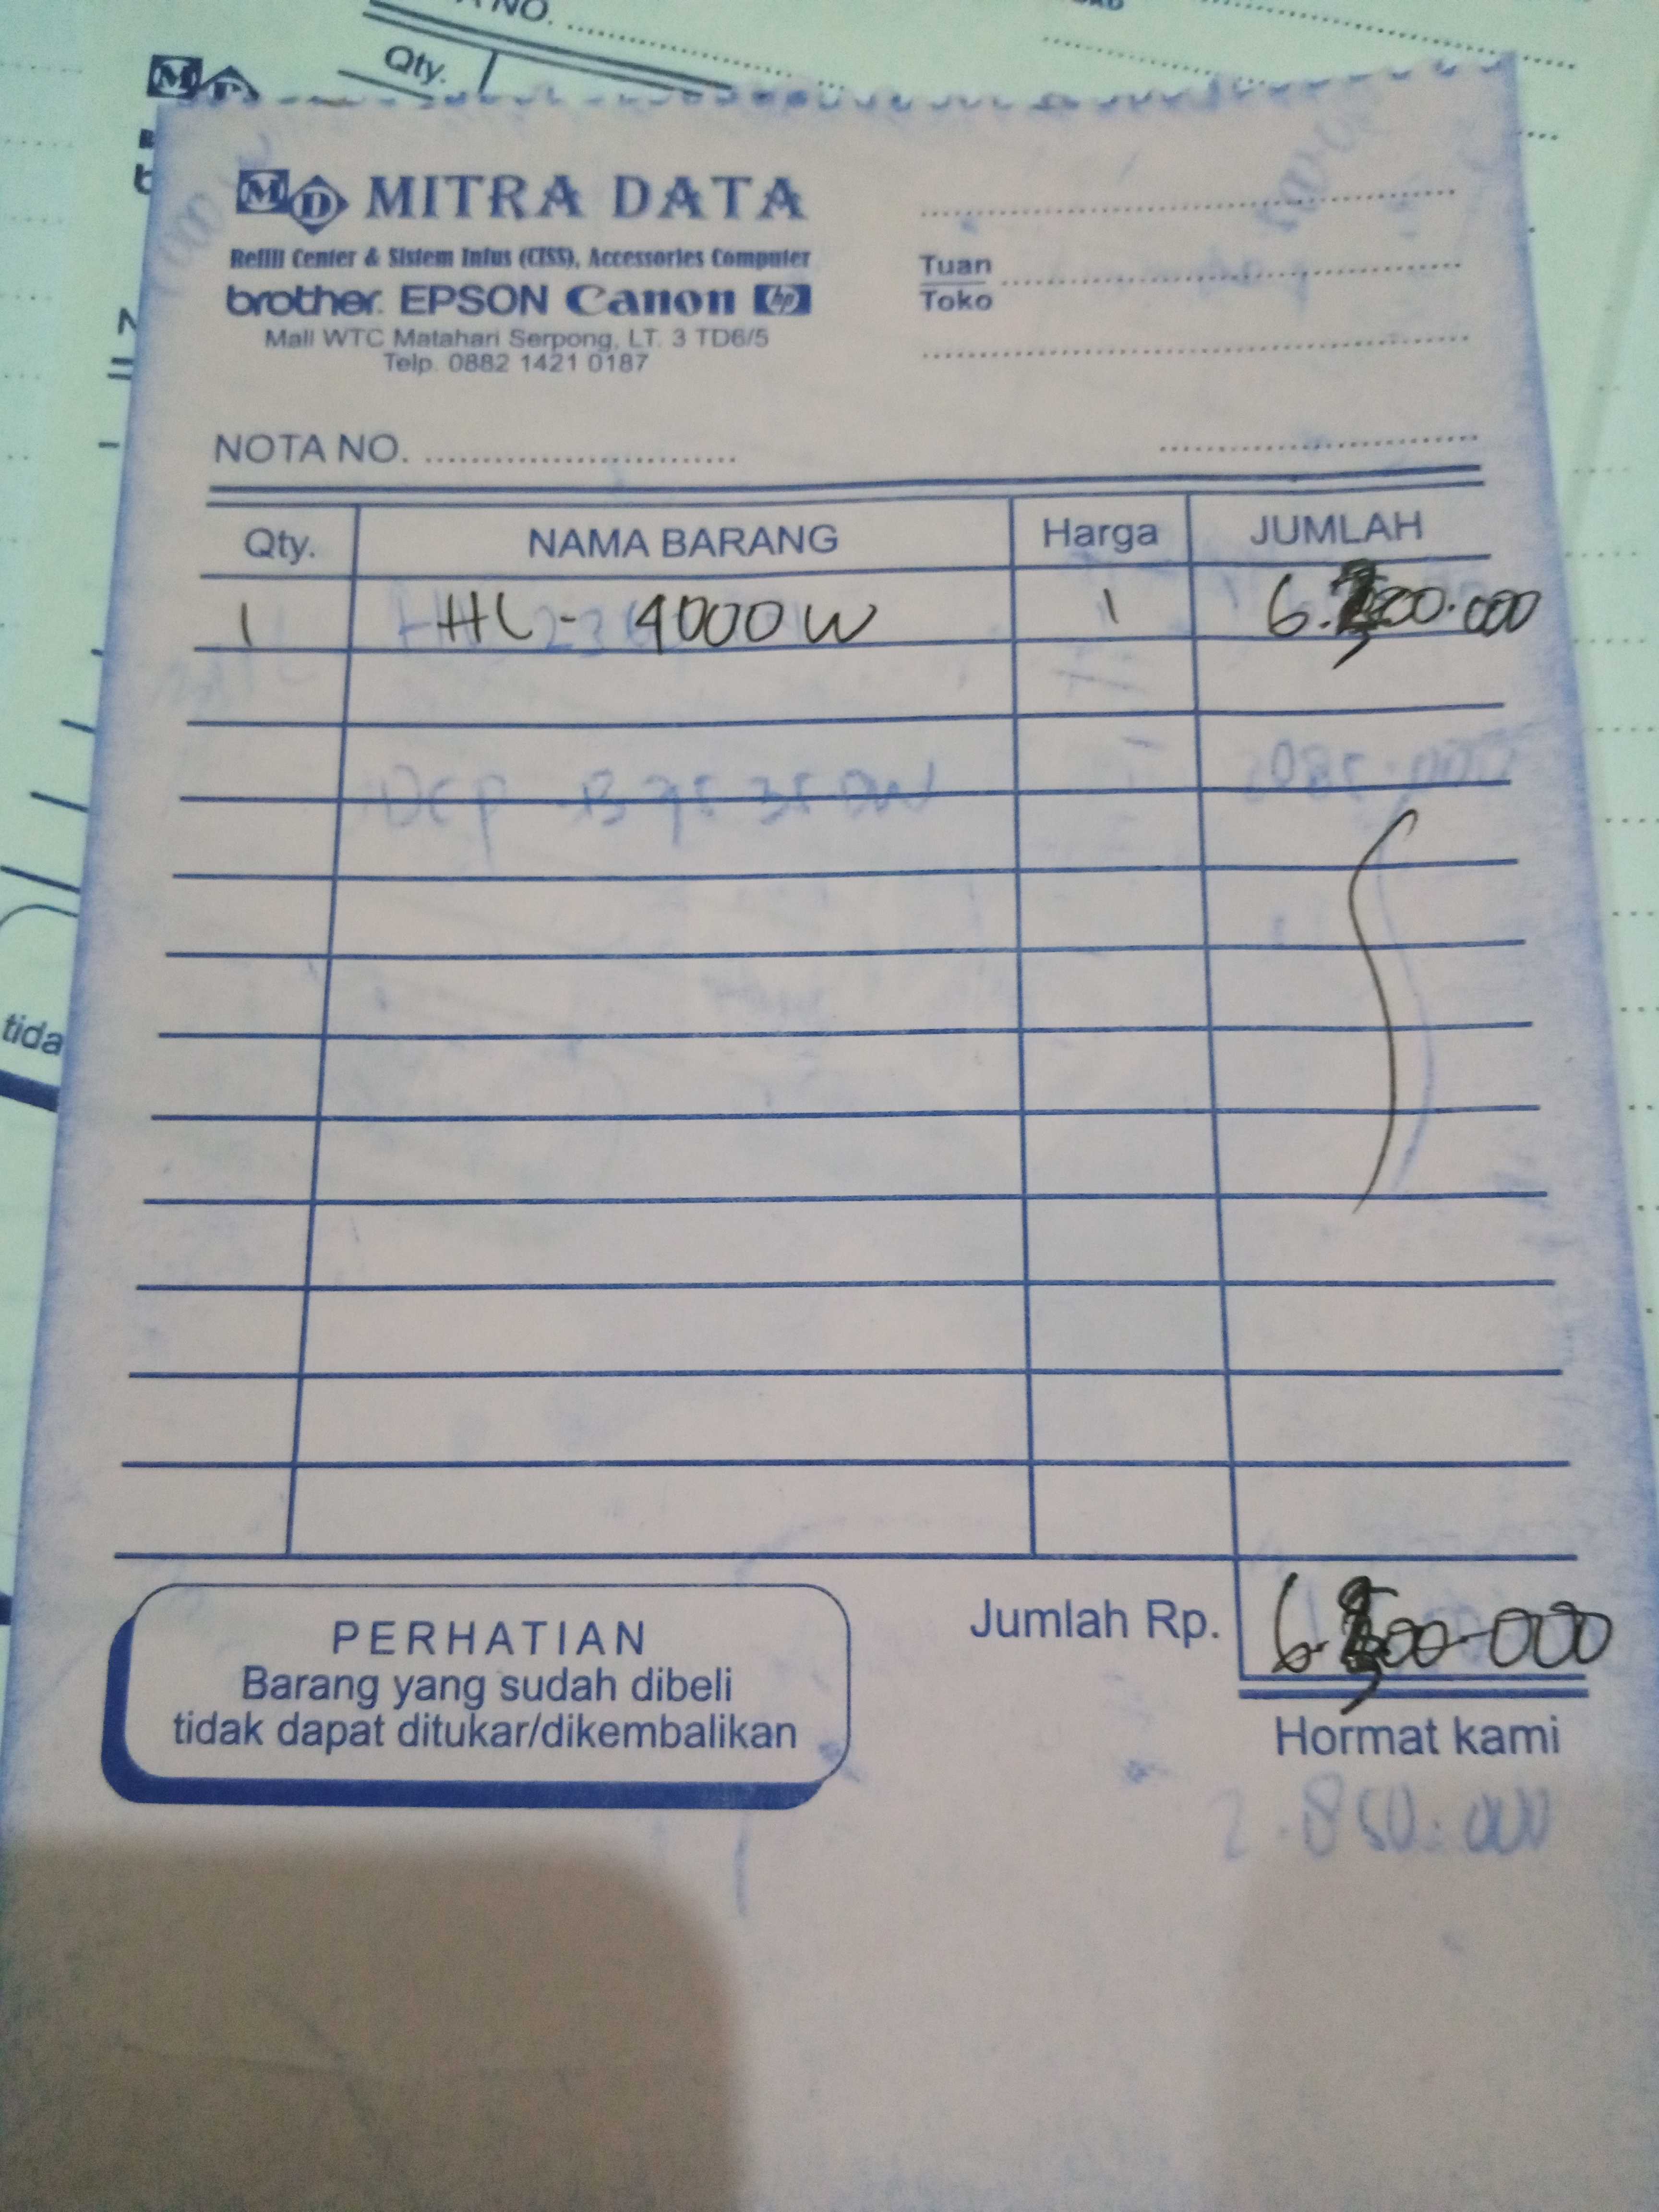 NO.
Qty.
M
MD MITRA DATA
Refill Center & Sistem Infus (CISS), Accessories Computer
brother. EPSON Canon hp
Mall WTC Matahari Serpong, LT. 3 TD6/5
Telp. 0882 1421 0187
Tuan
Toko
NOTA NO.
Qty. NAMA BARANG Harga JUMLAH
1 HL- 4000 W 1
tida
Jumlah Rp.
PERHATIAN
Barang yang sudah dibeli
tidak dapat ditukar/dikembalikan
Hormat kami
2.850.000